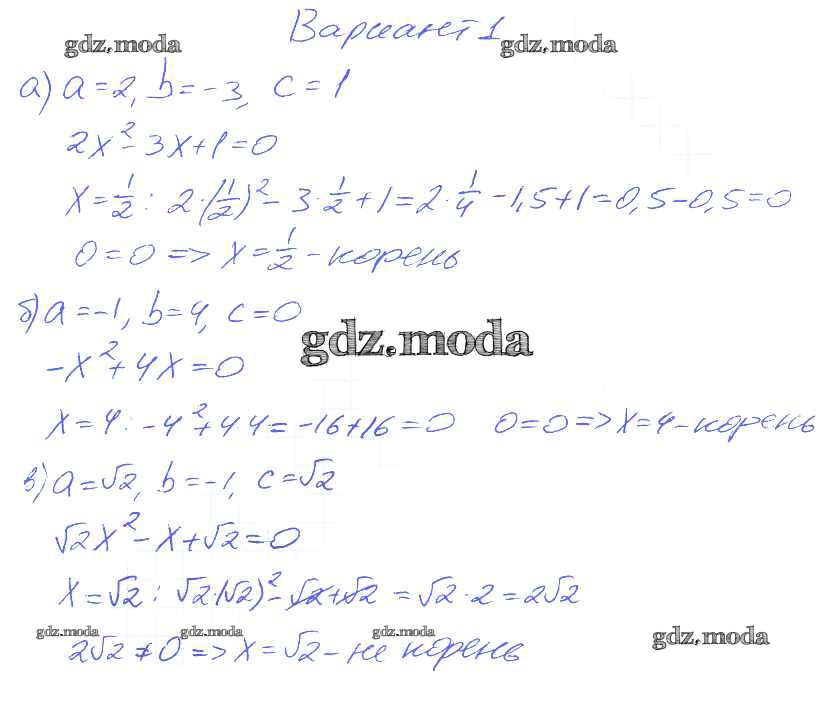 Вариант 1
gdz.moda gdz.moda
а) a=2, b=-3, c=1
2x²-3x+1=0
x=1/2: 2·(1/2)²-3·1/2+1=2·1/4-1,5+1=0,5-0,5=0
0=0=>x=1/2-корень
б) a=-1, b=4, c=0
gdz.moda
-x²+4x=0
x=4: -4²+4·4=-16+16=0 0=0=>x=4-корень
в) a=√2, b=-1, c=√2
√2x²-x+√2=0
x=√2: √2·(√2)²-√2+√2=√2·2=2√2
gdz.moda gdz.moda gdz.moda gdz.moda
2√2≠0=>x=√2-не корень